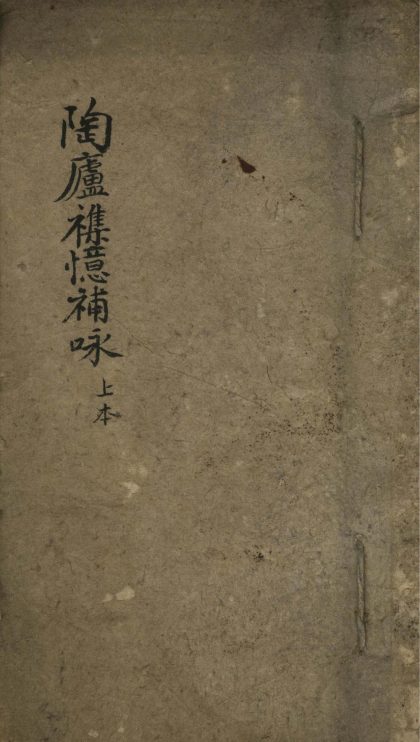 陶廬襍憶補咏
上本